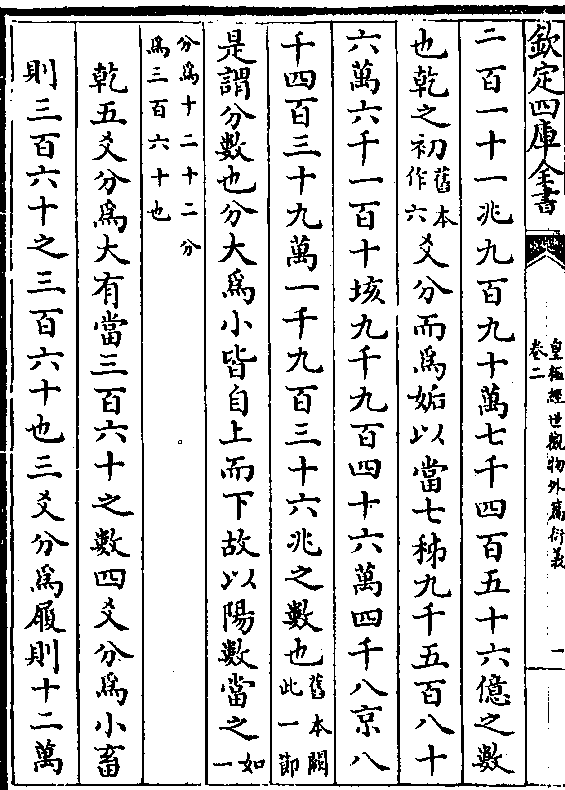 欽定四庫全書
皇極經世觀物外篇衍義
卷二
二
二百一十一兆九百九十萬七千四百五十六億之數
也乾之初舊本作六爻分而為姤以當七秭九千五百八十
六萬六千一百十垓九千九百四十六萬四千八京八
千四百三十九萬一千九百三十六兆之數也舊本闕此一節
是謂分數也分大為小皆自上而下故以陽數當之如一
分為十二十二分
為三百六十也
乾五爻分為大有當三百六十之數四爻分為小畜
則三百六十之三百六十也三爻分為履則十二萬